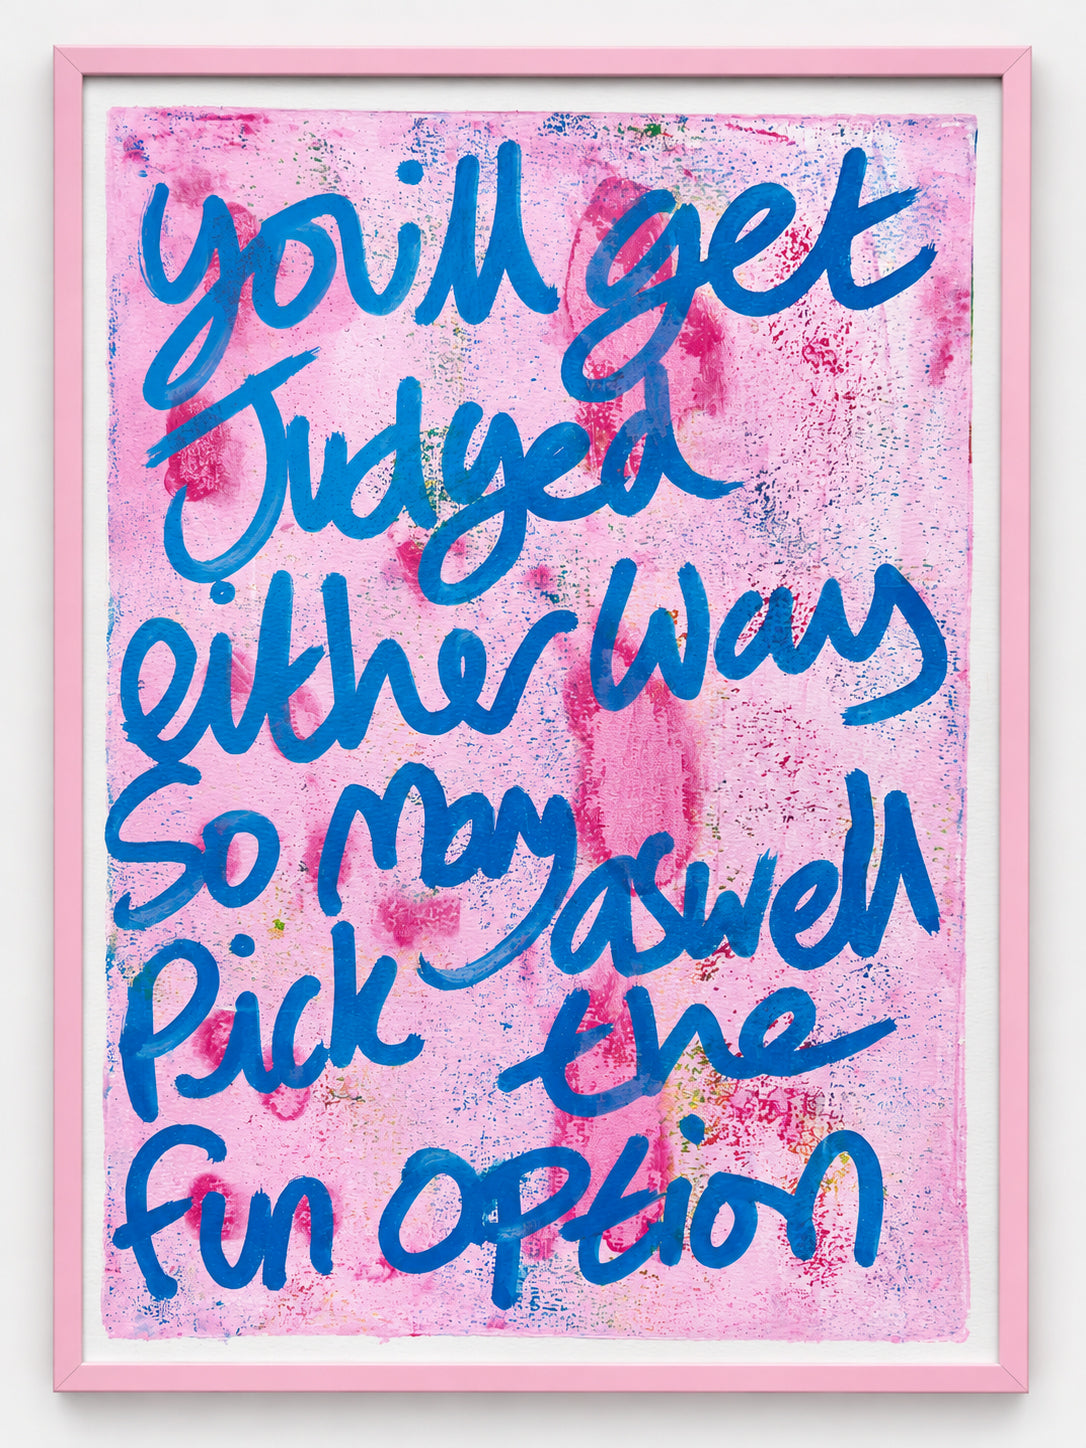 you'll get
Judged
either ways
So may aswell
Pick the
fun option